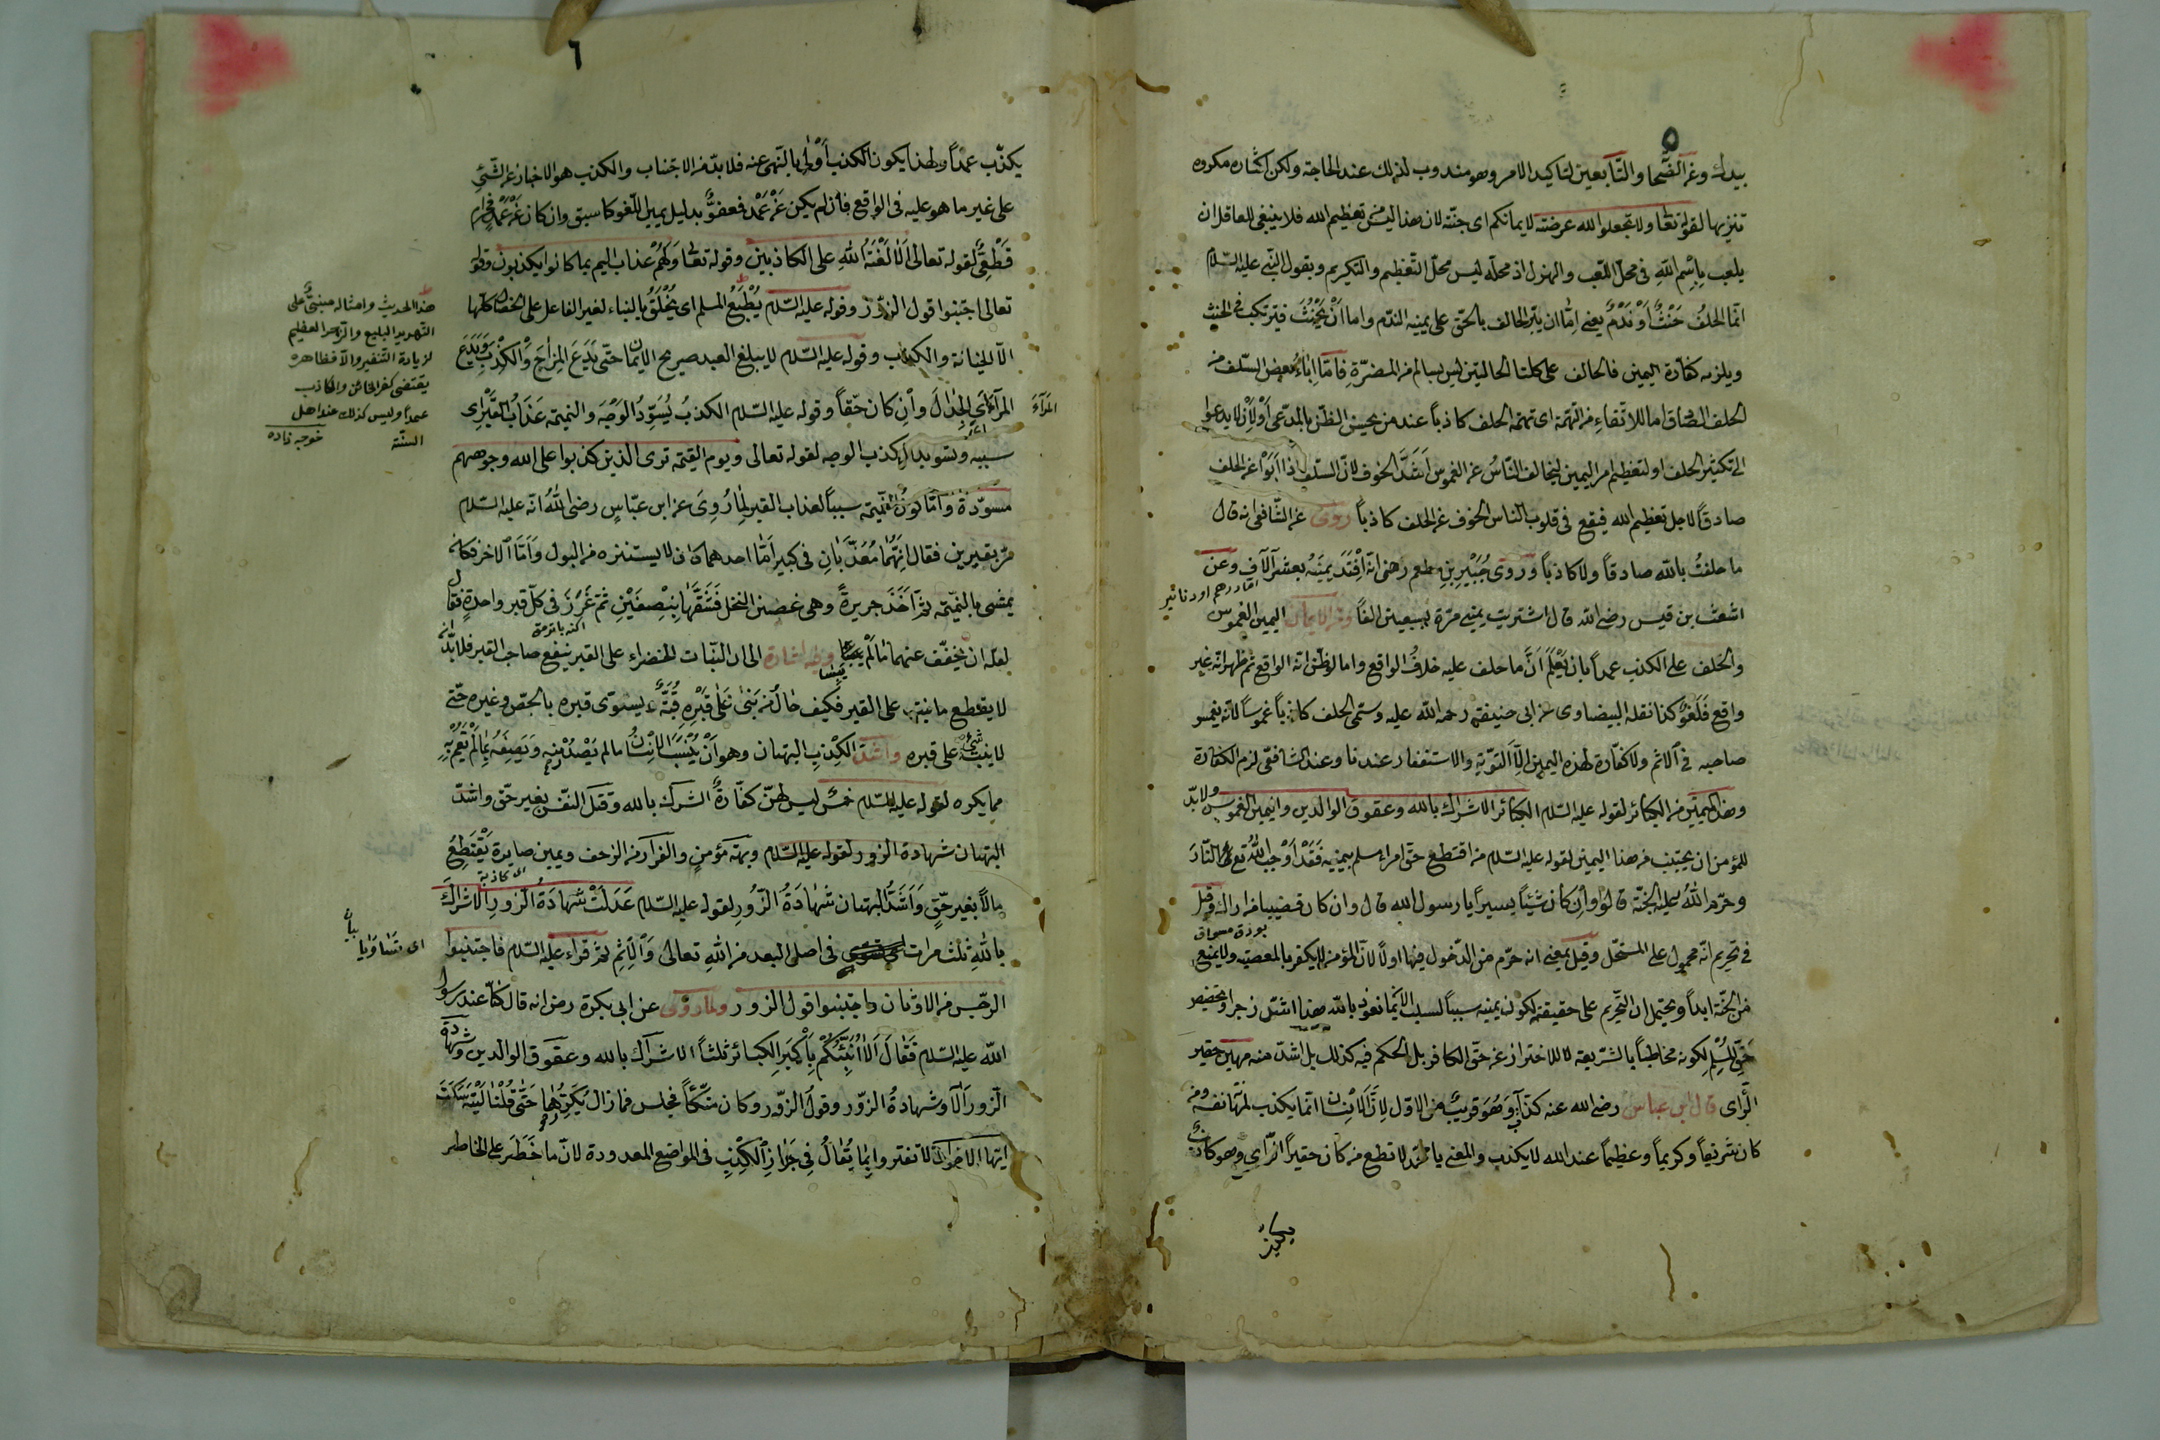 ٥
بيدك وعن الصحا والتابعين لتاكيد الامر وهو مندوب لذلك عند الحاجة ولكن اكثاره مكروه
تنزيها لقوله تعا ولا تجعلوا الله عرضة لايمانكم اى جنّة لان هذا ليس من تعظيم الله فلا ينبغى للعاقل ان
يلعب بِاسْم اللهِ فى محلّ اللعب والهزل اذ محلّه ليس محلّ التّعظيم والتكريم وبقول النّبى عليه السّلام
انّما الحلفُ حَنْثٌ اَوْ نَدَمٌ يعنى امّا ان يبرّ الحالف بالحقّ على يمينه الندّم واما اَنْ يَحْنُثَ فيرتكب فى الحنث
ويلزمه كفّارة اليمين فالحالف على كلتا الحالتين ليس بسالم من المضرّة فامّا اِباءُ بعض السّلف من
الحلف الصّادق اما للاتّقاءِ من التّهمة اى تهمة الحلف كاذباً عند من يحسن الظنّ بالمدّعى اَوْ لِاَنْ لا يدعوا
الى تكثير الحلف او لتعظيم امر اليمين ليخالف النّاسُ عن الغموس اَشَدَّ الخوف لانّ السّلف اذا اَبَوْا عن الحلف
صادقاً لاجل تعظيم الله فيقع فى قلوب النّاس الخوف عن الحلف كاذباً روى عن الشّافعى انه قال
ما حلفتُ بالله صادقاً ولا كاذباً وروى جُبَيْرِ بْنِ مطعم رضى انّه اِفْتَدَ يمينَهُ بعشر آلاف وعن
اشعث بن قيس رضى الله قال اشتريت يمينى مرّة بسبعين الفاً ومن الايمان اليمين الغموس
والحَلف على الكذب عمداً بان يَعْلَمَ اَنَّ ما حلف عليه خلافُ الواقع واما لو ظنّ انّه الواقع ثم ظهر انّه غير
واقع فَلَغْوٌ كذا نقله البيضاوى عن ابى حنيفة رحمه الله عليه وسمّى الحلف كاذباً غموساً لانّه يغمس
صاحبه فى الاثم ولا كفّارة لهذه اليمين الّا التوبة والاستغفار عندنا وعند الشافعى لزم الكفّارة
وهذا اليمين من الكبائر لقوله عليه السّلام الكبائر الاشراك بالله وعقوق الوالدين واليمين الغموس ولا بدّ
للمؤمن ان يجتنب من هذا اليمين لقوله عليه السّلام من اقتطع حقّ امرءٍ مسلم بيمينه فَقَدْ اَوْجب اللهُ تع له النّارَ
وحرّم اللهُ عليه الجنّة قالوا وَاِنْ كان شيئاً يسيراً يا رسول الله قال وان كان قضيبا من اراك وقيل
فى تحريم انّه محمول على المستحلّ وقيل بمعنى انه حرّم من الدّخول فيها اولاً لانّ المؤمن لا يكفر بالمعصية ولا يمنع
من الجنّة ابداً ويحتمل ان التّحريم على حقيقته لكون يمينه سبباً لسلب الايمان نعوذ بالله هذا اشدّ زجرا وتخصيص
حقّ المُسْلِم لكونه مخاطباً بالشّريعة لا للاحتراز عن حقّ الكافر بل الحكم فيه كذلك بل اشدّ منه مهين حقير
الرّاى قال ابن عباس رضى الله عنه كذّاب وهو قريب من الاوّل لِاَنَّ الْاِنْسان انّما يكذب لمهانة نفسه ومن
كان شريفاً وكريماً وعظيماً عند الله لا يكذب والمعنى يا محمّد لا تطع من كان حقيراً الرّاى وهو كان
يكذب
الف درهم او دنانير
بوزق مسواق
٦
يكذّب عمداً ولهذا يكون الكذب اَوْلى بالنّهى عنه فلا بدّ من الاجتناب والكذب هو الاخبار عن الشّئ
على غير ما هو عليه فى الواقع فأن لم يكن عَنْ عَمْدٍ فعفوٌ بدليل يمين اللّغو كما سبق وان كان عَنْ عَمْدٍ فحرام
قَطْعِىٌّ لقوله تعالى اَلَا لَعْنَةُ اللهِ على الكاذبين وقوله تعا وَلَهُمْ عذاب اليم بما كانوا يكذبون وقوله
تعالى اجتنبوا قول الزّور وقوله عليه السّلام يُطْبَعُ المسلم اى يُخْلَقُ بالبناء لغير الفاعل على الخصال كلّها
الّا الخيانة والكذب وقوله عليه السّلام لا يبلغ العبد صريح الايمان حتّى يَدَعَ المِزاحَ وَالْكَذِبَ وَيَدَعَ
المِرآءَ اى الْجِدَالَ وانْ كان حقّاً وقوله عليه السّلام الكذبُ يُسَوِّدُ الوَجْهَ والنميمة عَذَابُ الْقَبْرِ اى
سببه وتسويد الكذب الوجه لقوله تعالى ويوم القيمة ترى الذين كذبوا على الله وجوههم
مسوّدة وَاَمّا كونُ النّميمة سبباً لعذاب القبر لِمَا رُوِىَ عن ابن عبّاسٍ رضى اللهُ انّه عليه السّلام
مرّ بقبرين فقال اِنَّهُما مُعَذَّبَانِ فى كبير اَمّا احدهما كان لا يستنزه من البول وَاَمّا الاخر فكان
يمشى بالنّميمة ثمّ اَخَذَ جريرةً وهى غصن النخل فَشَقَّهَا بِنِصْفَيْنِ ثمّ غَرَزَ فى كلّ قبر واحدةً فقال
لعلّه ان يخفّف عنهما ما لَمْ يَيْبَسا وفيه اشارة الى ان النّبات الخضراء على القبر ينفع صاحب القبر فلا بدّ ان
لا يقطع ما نبت على القبر فكيف حالُ من بَنى عَلى قَبْرِهِ قُبَّةً ويستوى قبره بالجصّ وغيره حتّى
لا ينبت شئ على قبره واشدّ الكِذْبِ البهتان وهو اَنْ يُنْسَبَ الْاِنْسانُ ما لم يَصْدُرْ مِنْهِ وَيَصِفَهُ بِمَا لَمْ يَقُمْ بِهِ
مما يكره لقوله عليه السّلام خمسٌ ليس لهنّ كفّارةٌ الشرك بالله وقتل النّفس بغير حقّ واشدّ
البهتان شهادة الزور لقوله عليه السّلام وبهت مؤمنٍ والفرار من الزحف ويمين صابرة يَقْتَطِعُ
مالاً بغير حقّ وَاَشَدُّ البهتان شَهَادَةُ الزُّورِ لقوله عليه السّلام عَدَلَتْ شَهادَةُ الزّورِ الاشراكَ
بالله ثلث مرات فى اصلى البعد من اللهِ تعالى وَالْاِثْمِ ثمّ قراء عليه السّلام فاجتنبوا
الرّجس من الاوثان واجتنبوا قول الزور ولما روى عن ابى بكرة رض انه قال كُنّا عند رسول
اللّه عليه السّلام فَقالَ اَلَا اُنَبِّئُكُمْ بِاَكْبَرِ الكبائر ثلثاً الاشراك بالله وعقوق الوالدين وشهادة
الزّور اَلَا وشهادةُ الزّور وقولُ الزّور وكان متّكئاً فجلس فما زال يُكَرِّرُها حَتّى قُلْنا لَيْتَهُ سَكَتَ
ايّها الاخوان لا تغتروا بِما يُقَالُ فِى جَوازِ الْكِذْبِ فى المواضع المعدودة لانّ ما خَطَرَ على الخاطر
المِرآءَ
هذا الحديث وامثاله مبنىٌّ على
التهديد البليغ والزّجر العظيم
لزيادة التّنفير والّا فظاهره
يقتضى كفر الخائن والكاذب
عمداً وليس كذلك عند اهل
السنّة خوجه زاده
اى تساويا
بيان